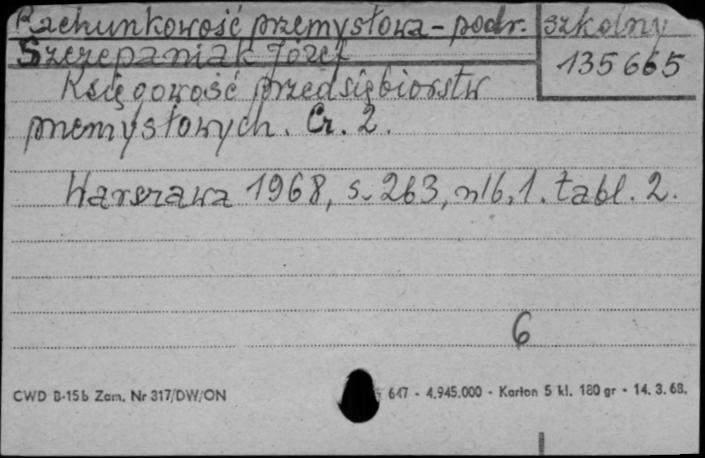 Rachunkowość przemysłowa - podr. szkolny
Szczepaniak Józef
135665
Księgowość przedsiębiorstw
przemysłowych. Cz. 2.
Warszawa 1968, s. 263, nlb. 1. tabl. 2.
6
CWD B-15b Zam. Nr 317/DW/ON 647 - 4.945.000 - Karton 5 kl. 180 gr - 14. 3. 68.